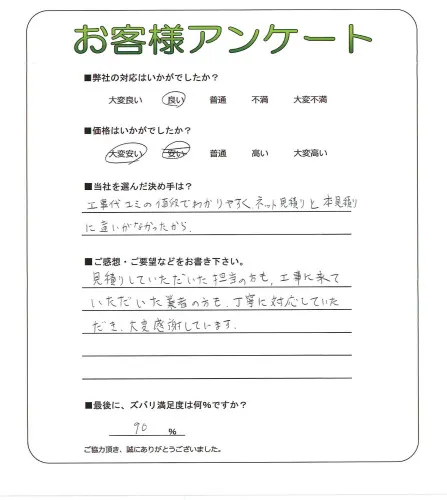 お客様アンケート
■弊社の対応はいかがでしたか？
大変良い 良い 普通 不満 大変不満
■価格はいかがでしたか？
大変安い 安い 普通 高い 大変高い
■当社を選んだ決め手は？
工事代コミの値段でわかりやすく、ネット見積りと本見積り
に違いがなかったから.
■ご感想・ご要望などをお書き下さい。
見積りしていただいた担当の方も、工事に来て
いただいた業者の方も、丁寧に対応していた
だき、大変感謝しています.
■最後に、ズバリ満足度は何％ですか？
90 ％
ご協力頂き、誠にありがとうございました。